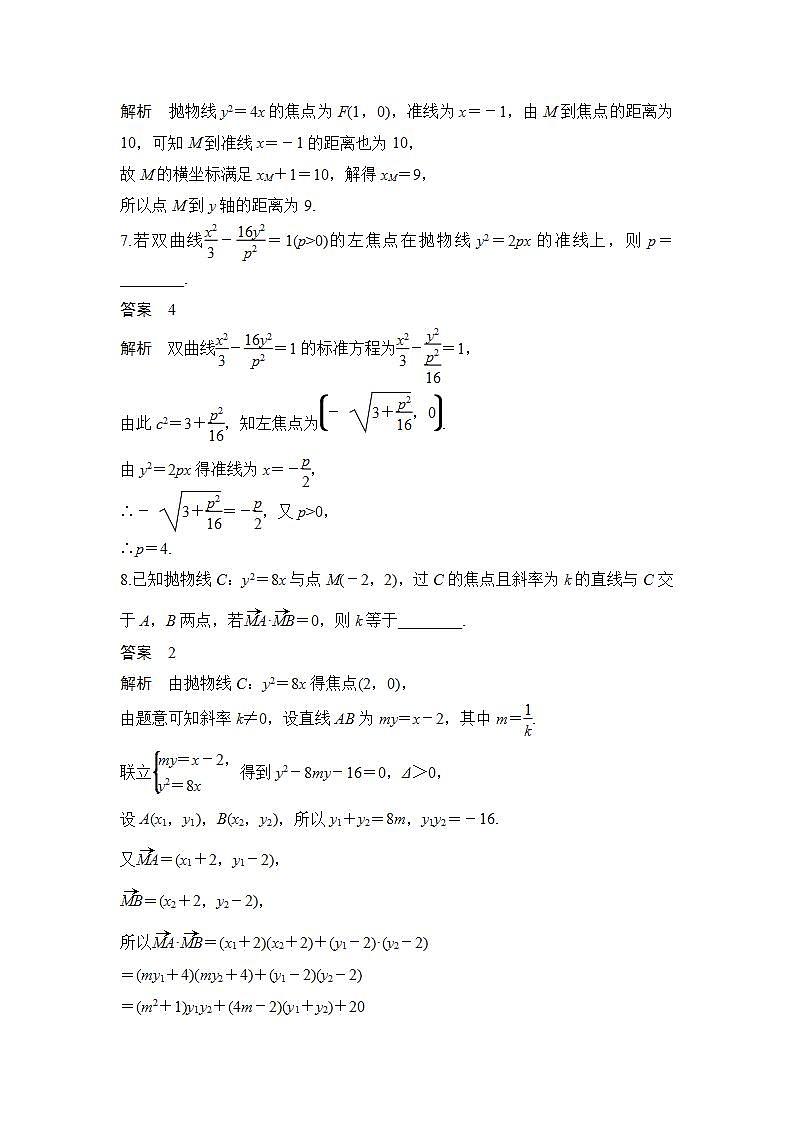 解析　抛物线 y²＝4x 的焦点为 F(1，0)，准线为 x＝－1，由 M 到焦点的距离为
10，可知 M 到准线 x＝－1 的距离也为 10，
故 M 的横坐标满足 xM＋1＝10，解得 xM＝9，
所以点 M 到 y 轴的距离为 9.
7.若双曲线x²/3－16y²/p²＝1(p>0)的左焦点在抛物线 y²＝2px 的准线上，则 p＝
________.
答案　4
解析　双曲线x²/3－16y²/p²＝1 的标准方程为x²/3－y²/(p²/16)＝1，
由此 c²＝3＋p²/16，知左焦点为(－√(3＋p²/16)，0).
由 y²＝2px 得准线为 x＝－p/2，
∴－√(3＋p²/16)＝－p/2，又 p>0，
∴p＝4.
8.已知抛物线 C：y²＝8x 与点 M(－2，2)，过 C 的焦点且斜率为 k 的直线与 C 交
于 A，B 两点，若MA→·MB→＝0，则 k 等于________.
答案　2
解析　由抛物线 C：y²＝8x 得焦点(2，0)，
由题意可知斜率 k≠0，设直线 AB 为 my＝x－2，其中 m＝1/k.
联立{my＝x－2，y²＝8x 得到 y²－8my－16＝0，Δ＞0，
设 A(x₁，y₁)，B(x₂，y₂)，所以 y₁＋y₂＝8m，y₁y₂＝－16.
又MA→＝(x₁＋2，y₁－2)，
MB→＝(x₂＋2，y₂－2)，
所以MA→·MB→＝(x₁＋2)(x₂＋2)＋(y₁－2)·(y₂－2)
＝(my₁＋4)(my₂＋4)＋(y₁－2)(y₂－2)
＝(m²＋1)y₁y₂＋(4m－2)(y₁＋y₂)＋20